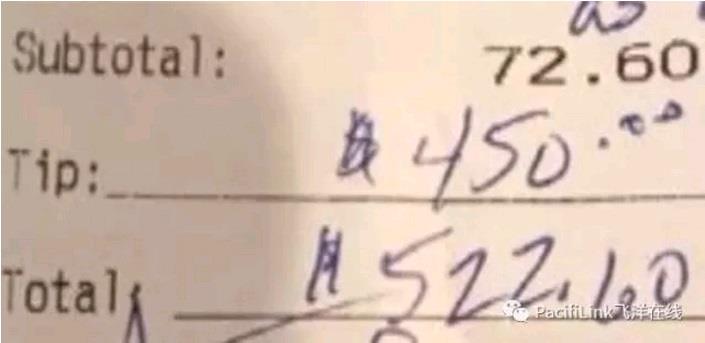 Subtotal: 72.60
Tip: $450.00
Total: $522.60
PacifiLink飞洋在线